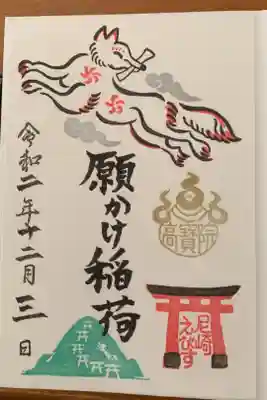 願かけ稲荷
令和二年十二月三日
高寳院
尼崎
えびす